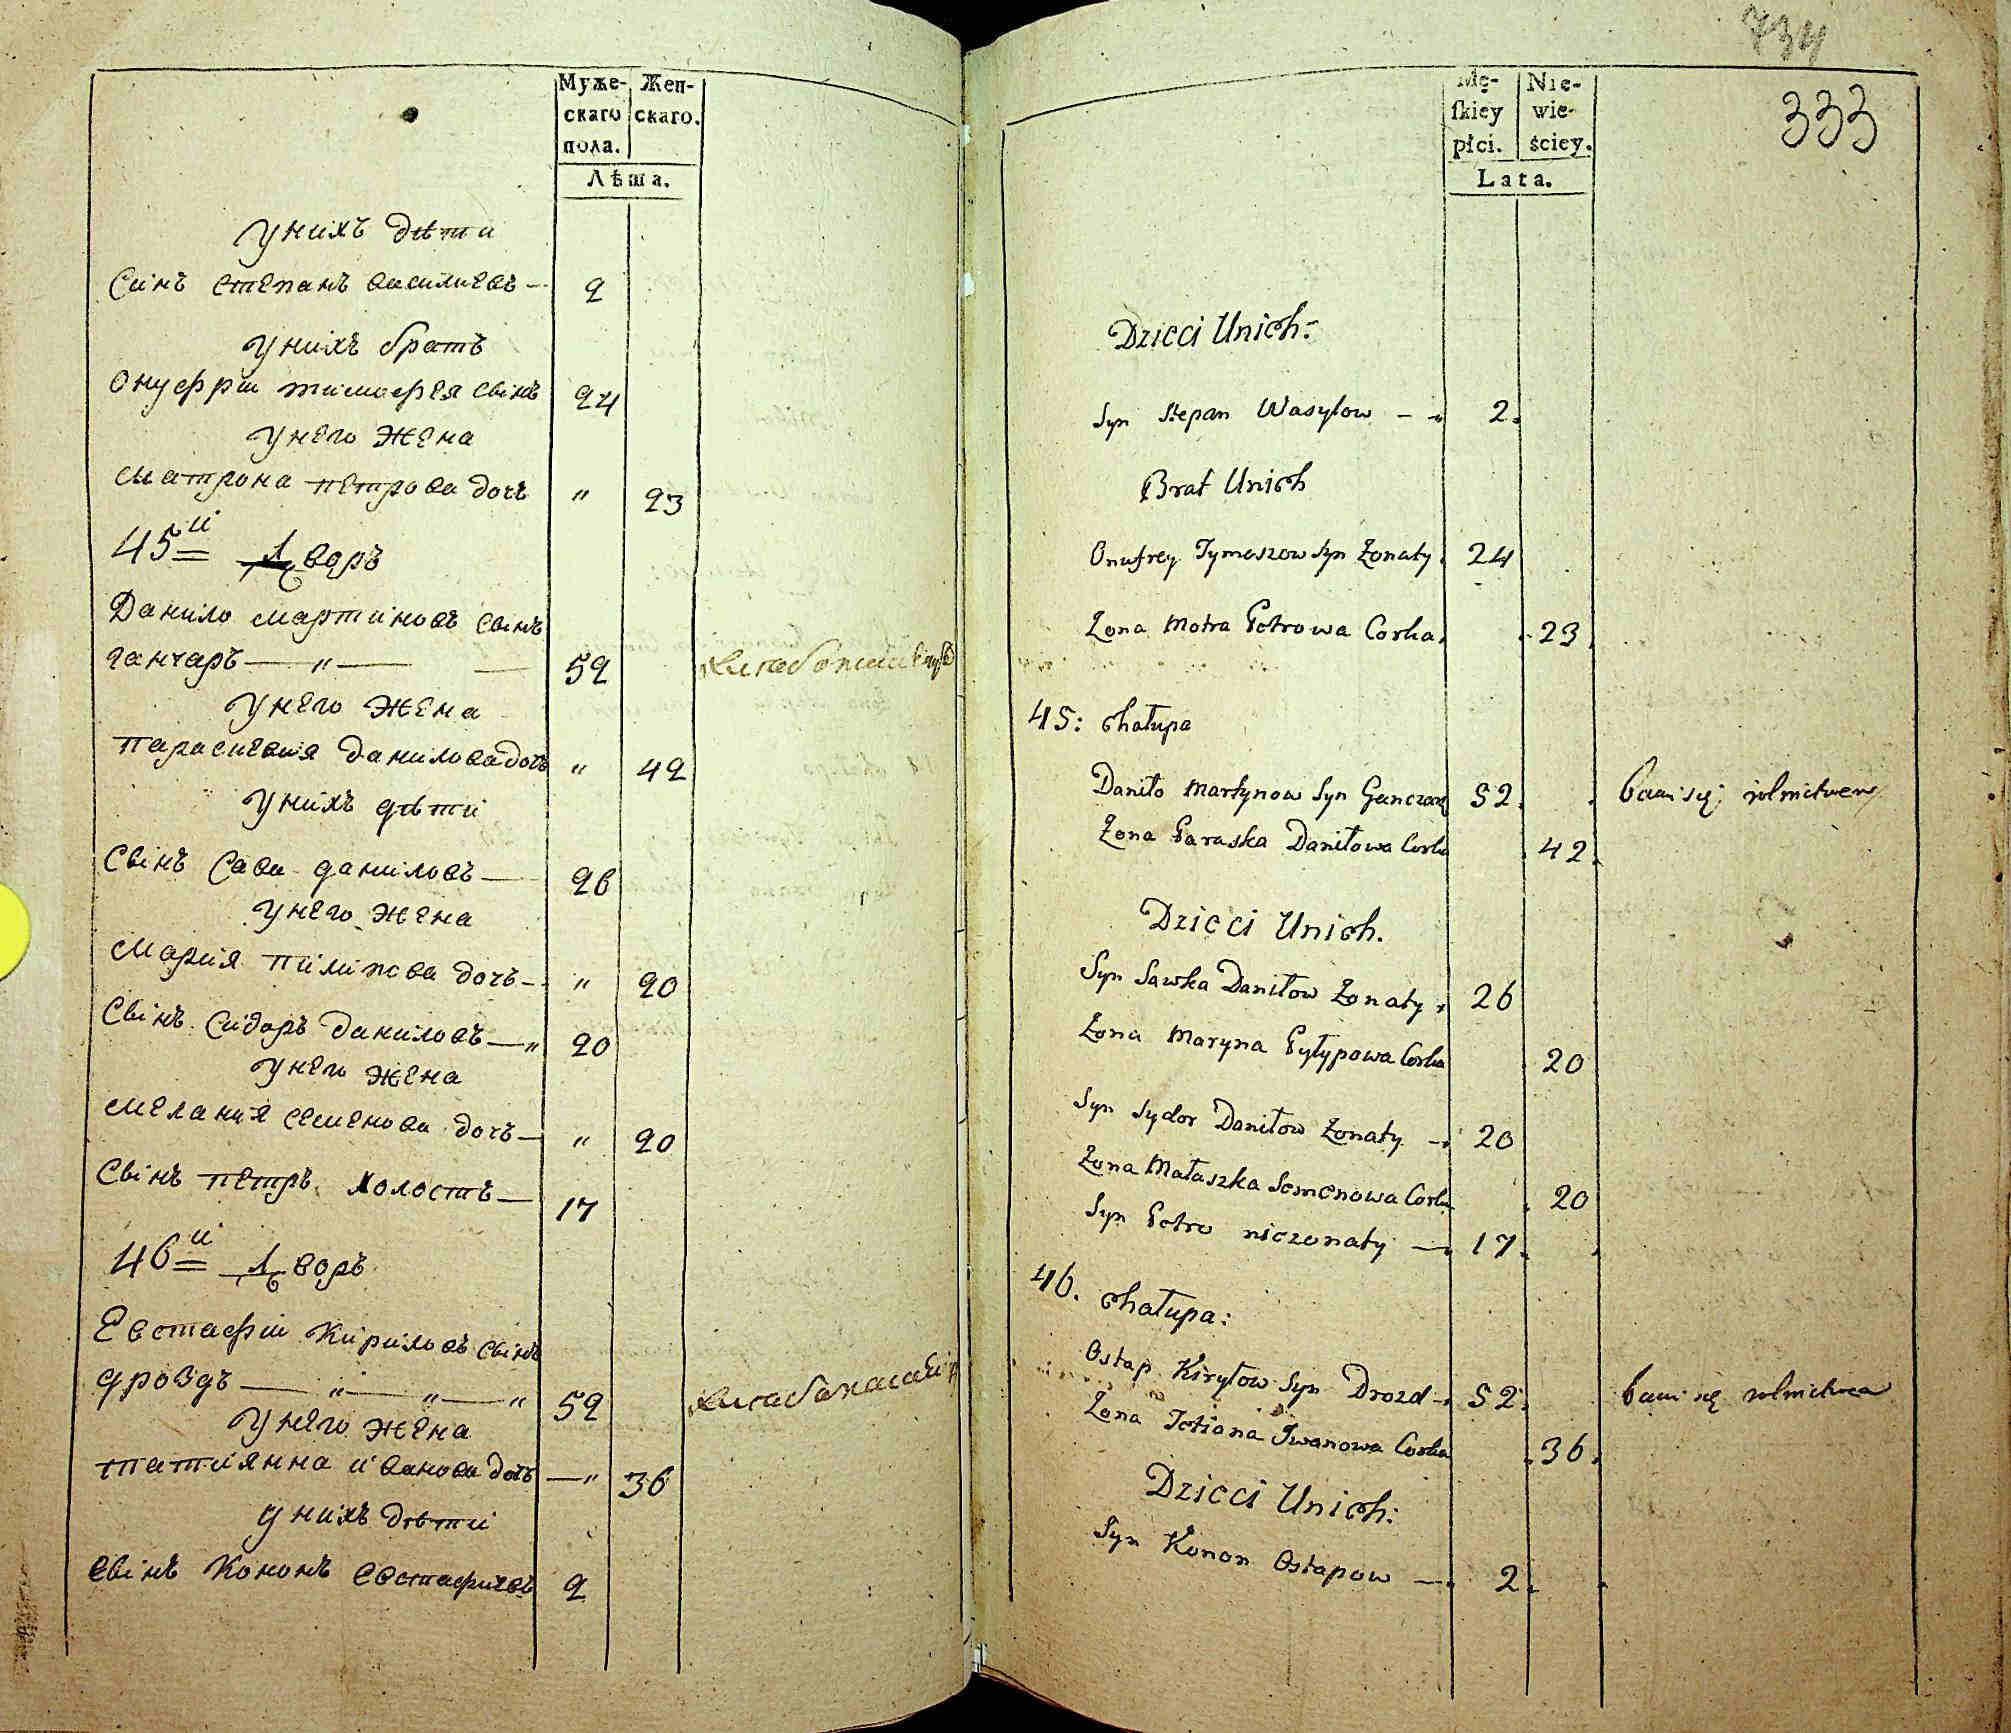 Муже-
скаго
пола.
Жен-
скаго.
Лѣта.
У нихъ дѣти
Синъ степанъ василиевъ — 2
У нихъ братъ
Онуфрии тимофея свінъ 24
У него жена
Матрона петрова дочъ " 23
45й Дворъ
Данило мартиновъ свінъ
ганчаръ — " — — 52
У него жена
Парасиевия Данилова дочъ " 42
У нихъ дѣти
Свінъ Сава даниловъ — 26
У него жена
Мария пилипова дочъ — " 20
Свінъ Сидоръ Даниловъ — " 20
У него жена
Мелания семенова дочъ — " 20
Свінъ петръ холостъ — 17
46й Дворъ
Евстафии Кириловъ свінъ
дроздъ — " — " — " 52
У него жена
татиянна иванова дочъ — " 36
У нихъ дѣти
Свінъ Кононъ Евстафиевъ 2
734
333
Mę-
ſkiey
płci.
Nie-
wie-
ściey.
Lata.
Dzieci Unich:
Syn Stepan Wasylow — 2.
Brat Unich
Onufrey Tymoszow Syn Żonaty. 24
Żona Motra Petrowa Corka. 23
45: Chałupa
Daniło Martynow Syn Ganczarz 52. bawi się rolnictwem
Żona Paraska Daniłowa Corka 42.
Dzieci Unich.
Syn Sawka Daniłow Żonaty. 26
Żona Maryna Pyłypowa Corka 20
Syn Sydor Daniłow Żonaty — 20
Żona Małaszka Semenowa Corka 20
Syn Petro nieżonaty — 17.
46. Chałupa:
Ostap Kiryłow Syn Drozd — 52. bawi się rolnictwem
Żona Tetiana Iwanowa Corka 36.
Dzieci Unich:
Syn Konon Ostapow — 2.